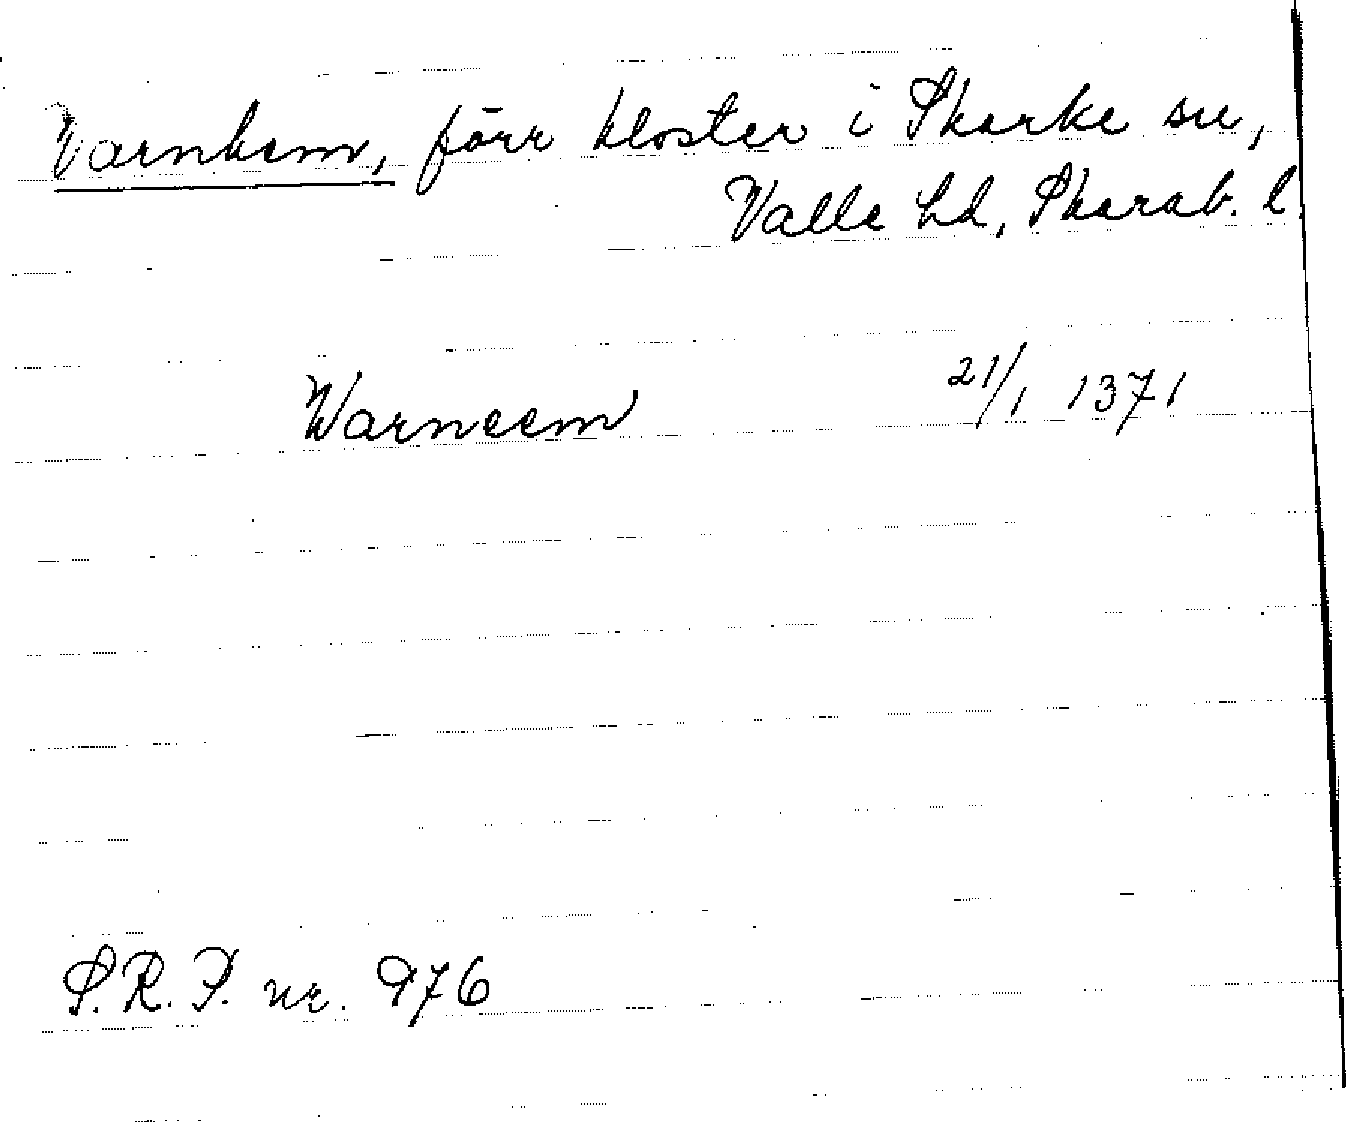 Varnhem, förr kloster i Skarke sn,
Valle hd, Skarab. l.
Warneem 21/1 1371
S.R.P. nr. 976